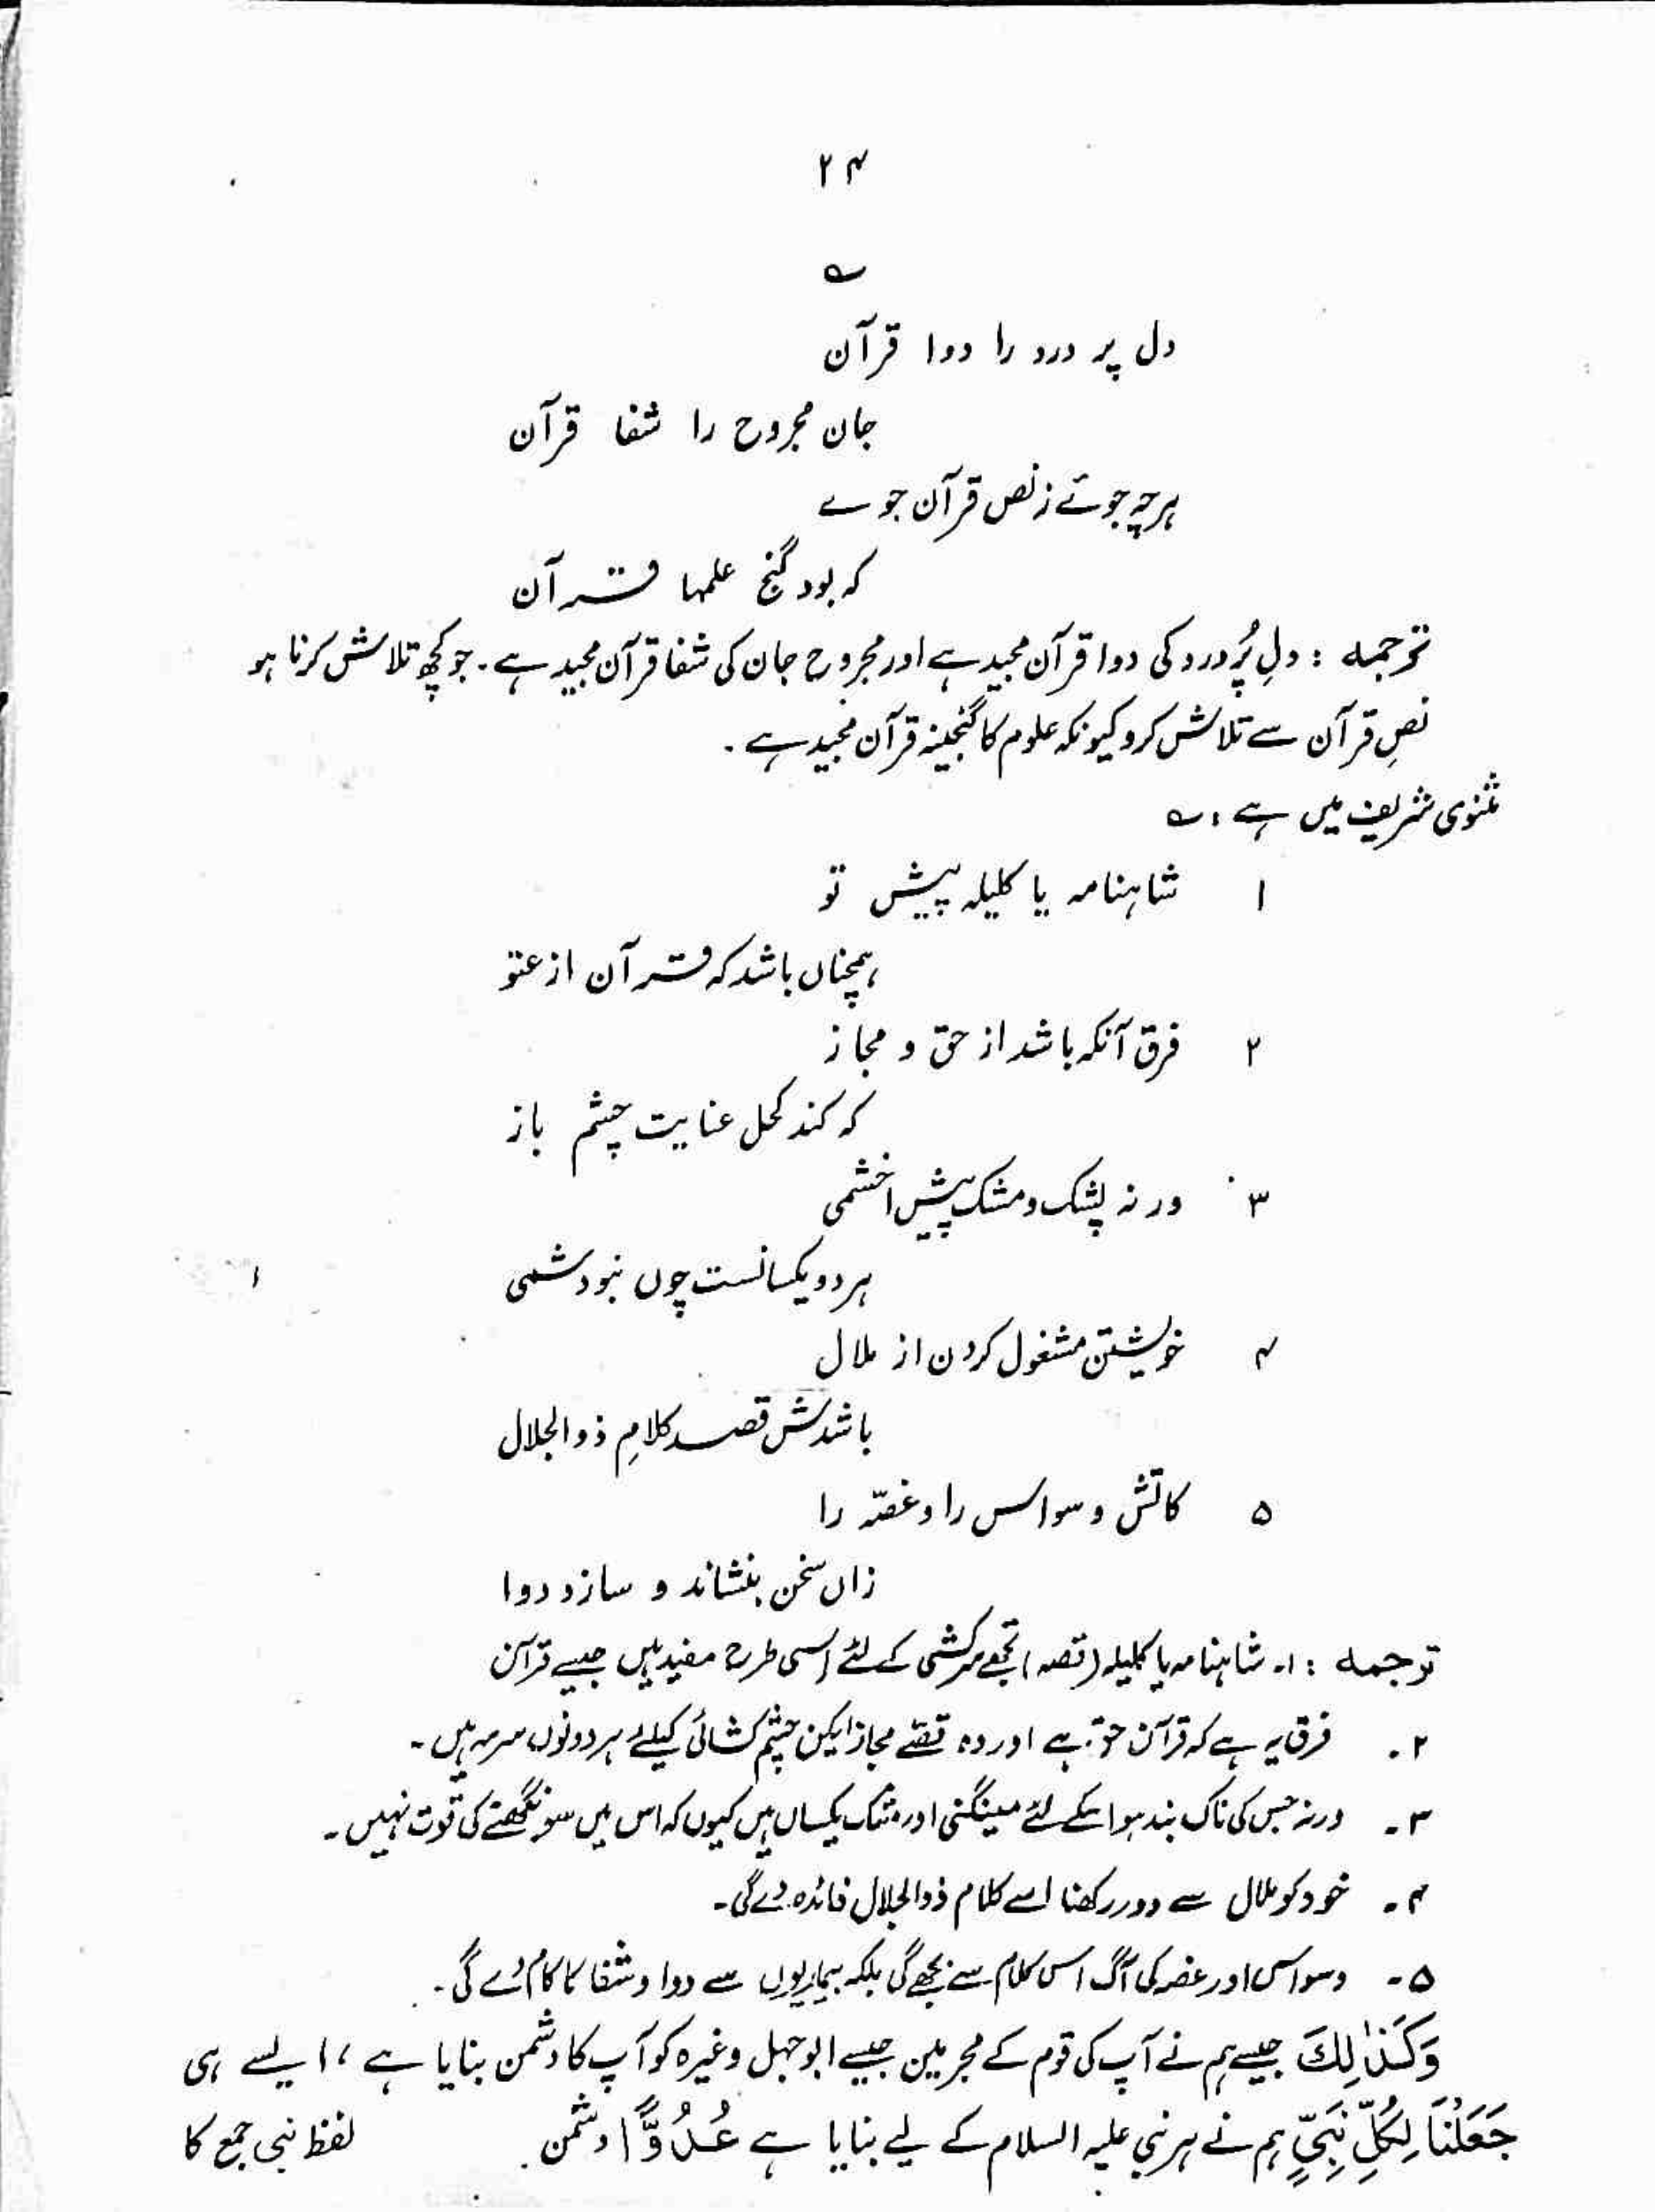 ۲۴
؎
دل پر درد را دوا قرآن
جان مجروح را شفا قرآن
ہرچہ جوئے ز نص قرآن جوے
کہ بود گنج علمہا قرآن
ترجمہ : دلِ پُر درد کی دوا قرآن مجید ہے اور مجروح جان کی شفا قرآن مجید ہے۔ جو کچھ تلاش کرنا ہو
نصِ قرآن سے تلاش کرو کیونکہ علوم کا گنجینہ قرآن مجید ہے۔
مثنوی شریف میں ہے : ؎
۱ شاہنامہ یا کلیلہ پیش تو
ہمچناں باشد کہ قرآن از عتو
۲ فرق آنکہ باشد از حق و مجاز
کہ کند کحل عنایت چشم باز
۳ ورنہ پشک و مشک پیش اخشمی
ہر دو یکسانست چوں نبود شمی
۴ خویشتن مشغول کردن از ملال
باشدش قصد کلامِ ذوالجلال
۵ کاتش وسواس را و غصّہ را
زاں سخن بنشاند و سازد دوا
ترجمہ : ۱۔ شاہنامہ یا کلیلہ (قصہ) تجھے سرکشی کے لئے اسی طرح مفید ہیں جیسے قرآن
۲۔ فرق یہ ہے کہ قرآن حق ہے اور وہ قصّے مجاز لیکن چشم کشائی کیلئے ہر دونوں سرمہ ہیں۔
۳۔ ورنہ جس کی ناک بند ہو اسکے لئے مینگنی اور مشک یکساں ہیں کیوں کہ اس میں سونگھنے کی قوت نہیں۔
۴۔ خود کو ملال سے دور رکھنا اسے کلام ذوالجلال فائدہ دے گی۔
۵۔ وسواس اور غصہ کی آگ اس کلام سے بجھے گی بلکہ بیماریوں سے دوا و شفا کا کام دے گی۔
وَكَذٰلِكَ جیسے ہم نے آپ کی قوم کے مجرمین جیسے ابوجہل وغیرہ کو آپ کا دشمن بنایا ہے ، ایسے ہی
جَعَلْنَا لِكُلِّ نَبِيٍّ ہم نے ہر نبی علیہ السلام کے لیے بنایا ہے عَدُوًّا دشمن۔ لفظ نبی جمع کا